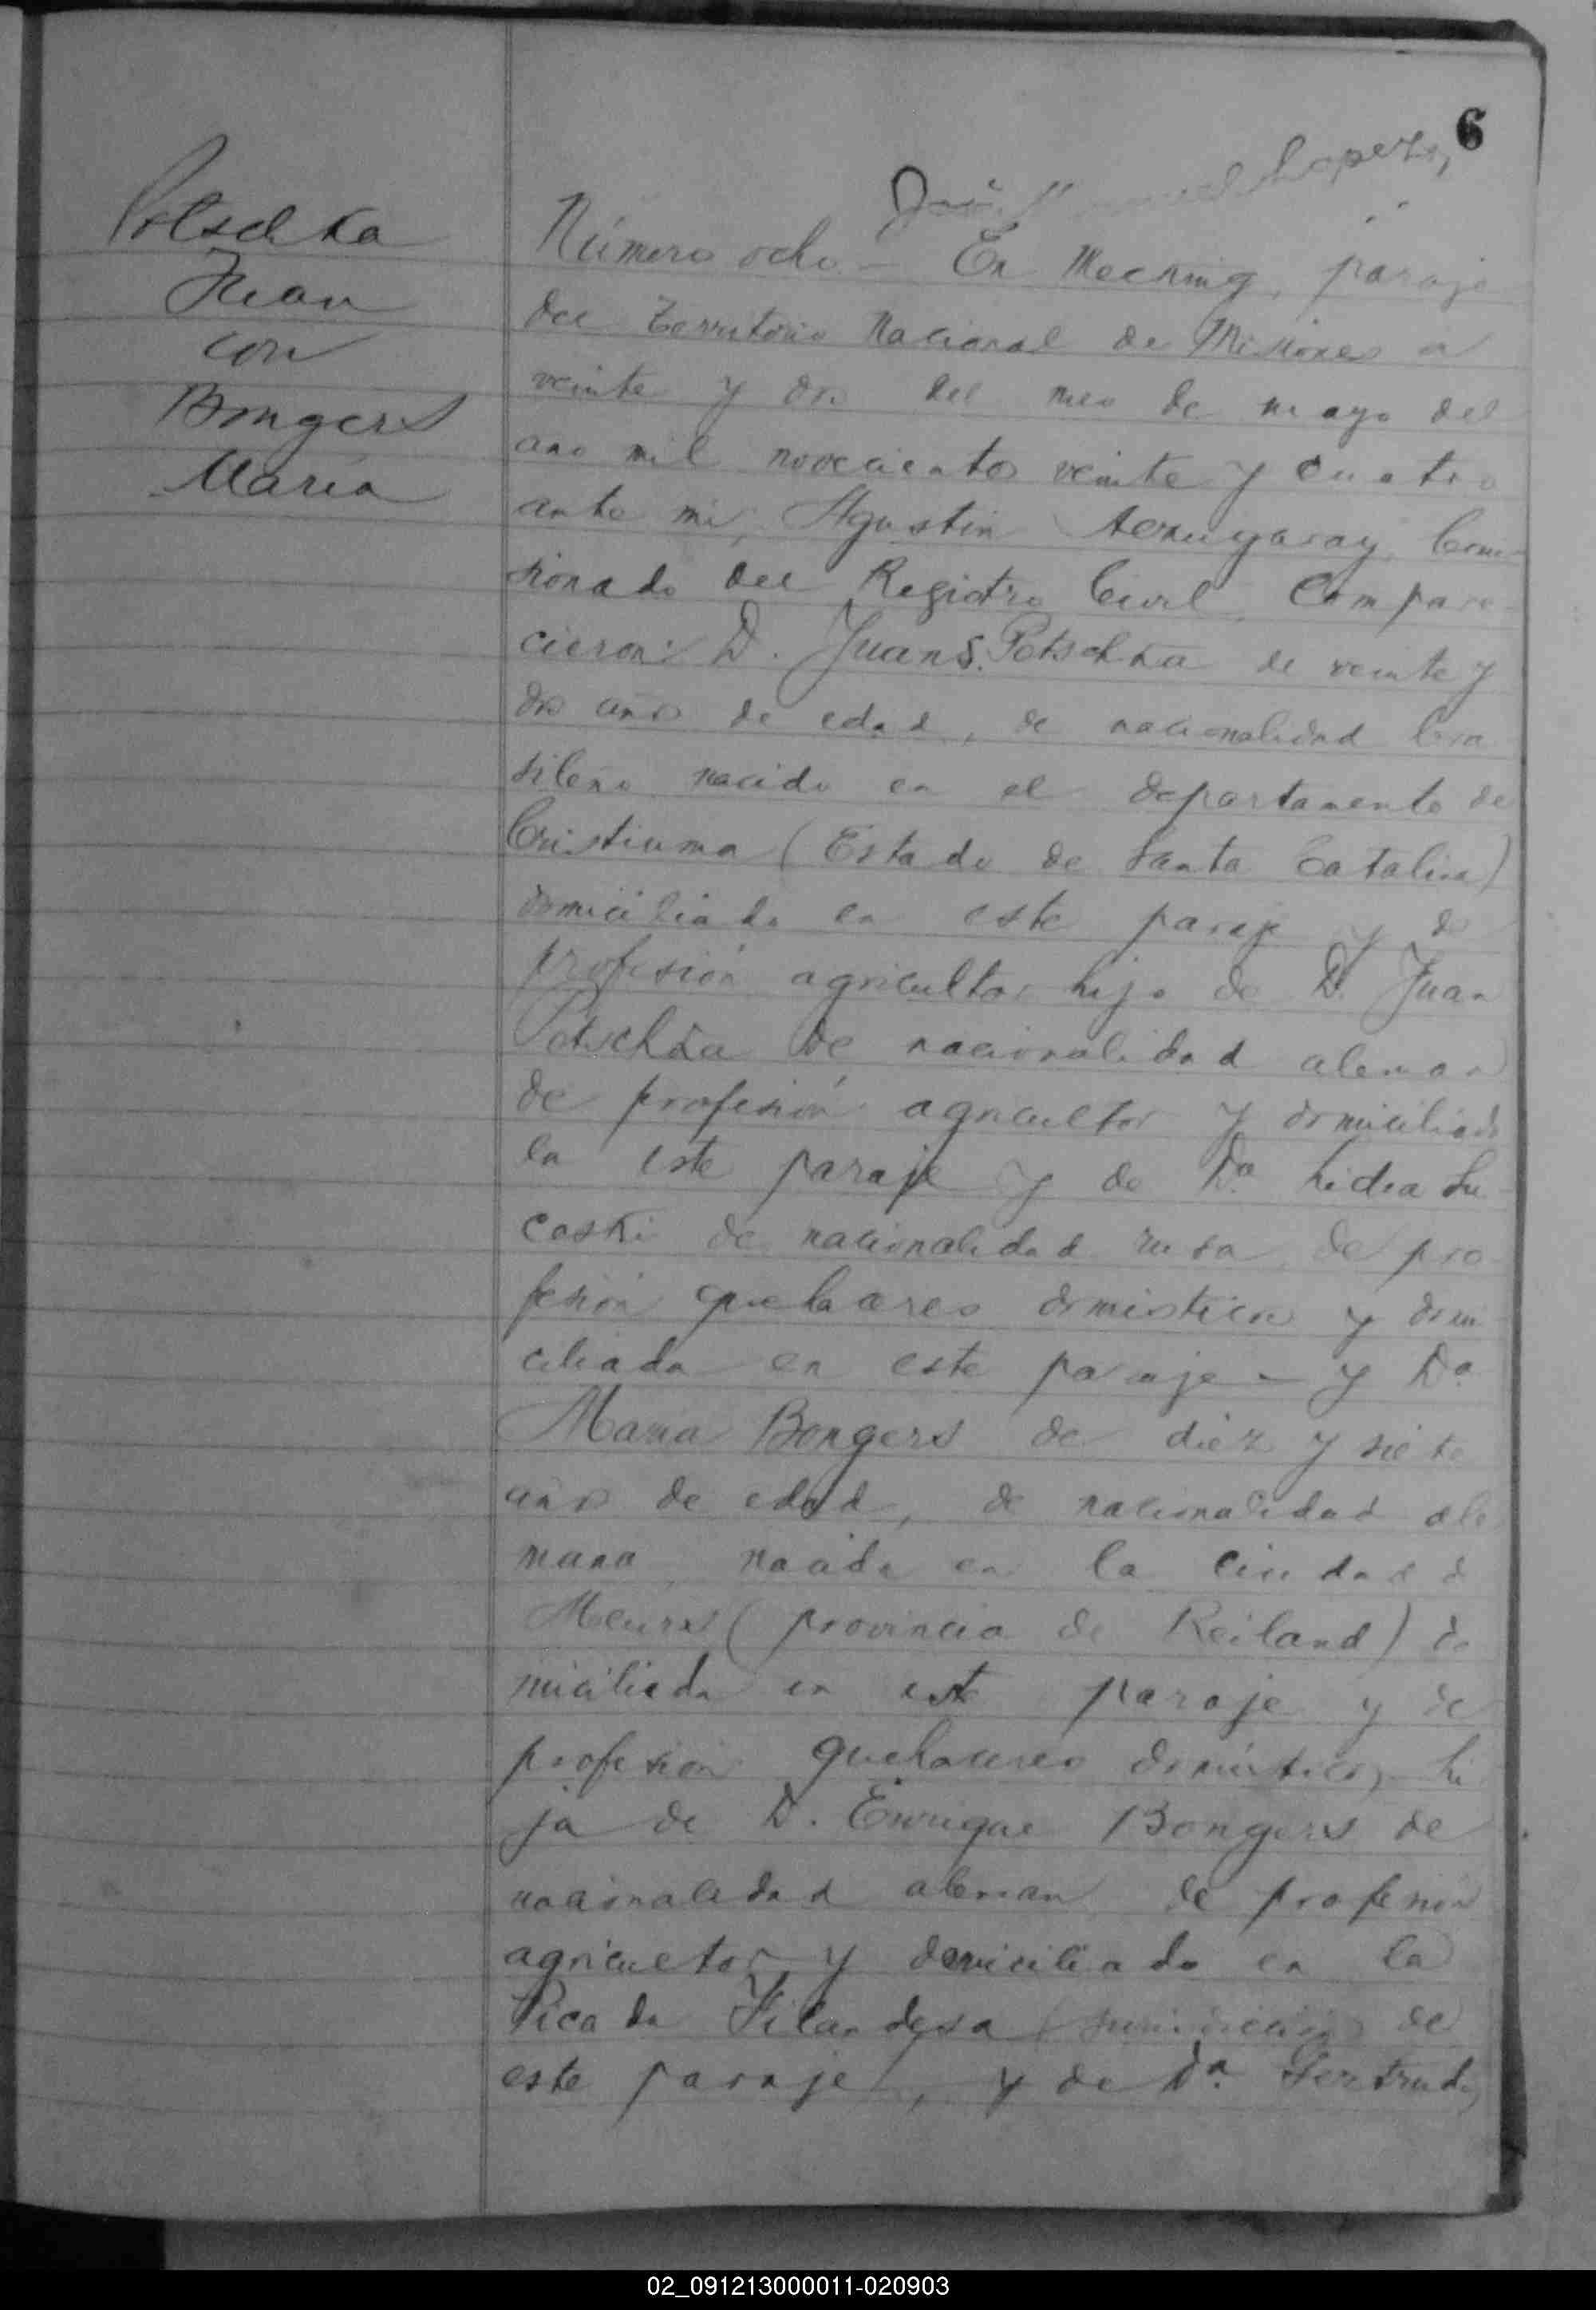 6
José Lopez,
Potschka
Juan
con
Bongers
María
Número ocho – En Mecking, paraje
del Territorio Nacional de Misiones a
veinte y dos del mes de mayo del
año mil novecientos veinte y cuatro
ante mi, Agustin Comi-
sionado del Registro Civil, Compare-
cieron: D. Juan S. Potschka de veinte y
dos años de edad, de nacionalidad bra
sileño nacido en el departamento de
Cristiuma (Estado de Santa Catalina)
domiciliado en este paraje y de
profesión agricultor hijo de D. Juan
Potschka de nacionalidad aleman
de profesión agricultor y domiciliado
en este paraje y de Da. Lidia Lu-
coski de nacionalidad rusa, de pro
fesión quehaceres domisticos y domi
ciliada en este paraje – y Da.
Maria Bongers de diez y siete
años de edad, de nacionalidad ale
mana, nacida en la ciudad d
Meurs (provincia de Reiland) do
miciliada en este paraje y de
profesión quehaceres domésticos, hi
ja de D. Enrique Bongers de
nacionalidad aleman de profesión
agricultor y domiciliado en la
Picada Filandesa (jurisdicción de
este paraje), y de Da. Gertrudis
02_091213000011-020903